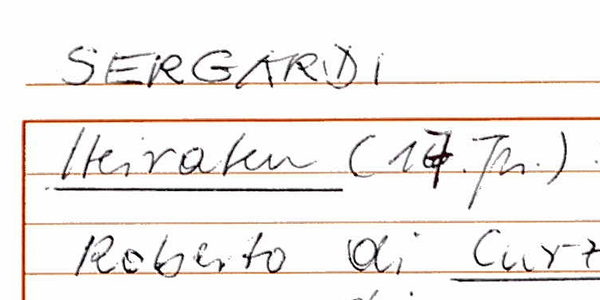 SERGARDI
Heiraten (17. Jh.)
Roberto di Curz
di